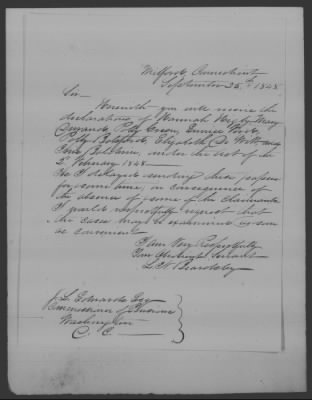 Milford, Connecticut
September 25th 1848.
Sir
Herewith you will receive the
declarations of Hannah Mary
Polly Green, Eunice
Polly Botsford, Elizabeth De Witt and
under the act of the
2d February 1848
As I delayed sending these papers
for some time, in consequence of
the absence of some of the claimants
I would respectfully request that
the case may be examined as soon
as convenient
I am Very Respectfully
Your Obedient Servant
Beardsley
J L Edwards Esq
Commissioner of Pensions
Washington